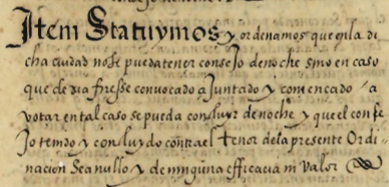 Item Statuymos y ordenamos que en la di
cha ciudad no se pueda tener consejo de noche sino en caso
que de dia fuesse convocado aJuntado y començado / a
votar en tal caso se pueda concluyr de noche y que el conse
Jo tenido y concluydo contra el tenor de la presente Ordi-
nacion Sea nullo y de ninguna efficacia ni Valor